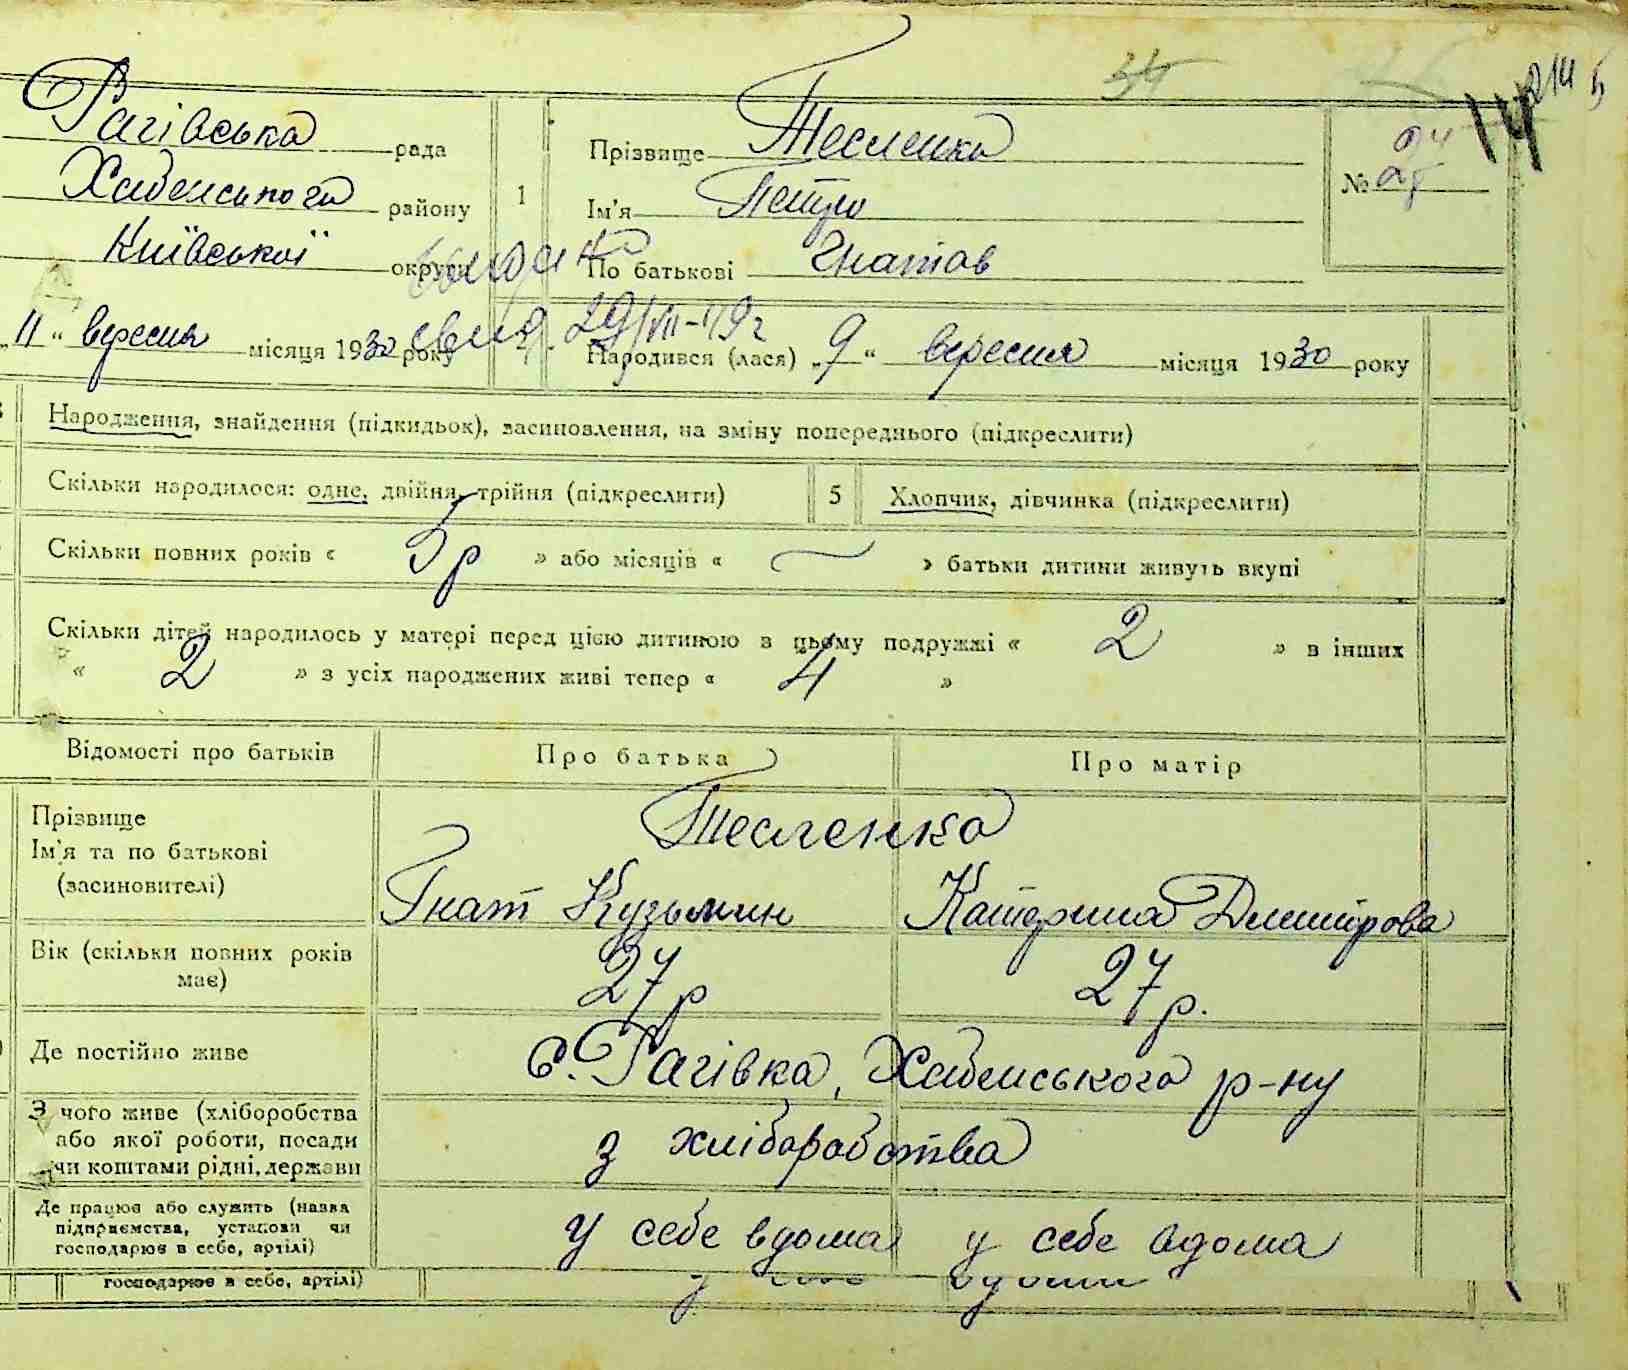 34
14
214
Рагівська рада
Хабенського району
Київської округи
„11“ вересня місяця 1930 року
1
Прізвище Тесленко
Ім'я Петро
По батькові Гнатов
№
Народився (лася) „9“ вересня місяця 1930 року
Народження, знайдення (підкидьок), засиновлення, на зміну попереднього (підкреслити)
Скільки народилося: одне, двійня, трійня (підкреслити) 5 Хлопчик, дівчинка (підкреслити)
Скільки повних років « 5 р » або місяців « — » батьки дитини живуть вкупі
Скільки дітей народилось у матері перед цією дитиною з цьому подружжі « 2 » в інших
« 2 » з усіх народжених живі тепер « 4 »
Відомості про батьків Про батька Про матір
Прізвище
Ім'я та по батькові
(засиновителі)
Тесленко
Гнат Кузьмин Катерина Дмитрова
Вік (скільки повних років
має)
27 р 27 р.
Де постійно живе с. Рагівка, Хабенського р-ну
З чого живе (хліборобства
або якої роботи, посади
чи коштами рідні, держави
з хліборобства
Де працює або служить (назва
підприємства, установи чи
господарює в себе, артілі)
у себе вдома у себе вдома
господарює в себе, артілі)